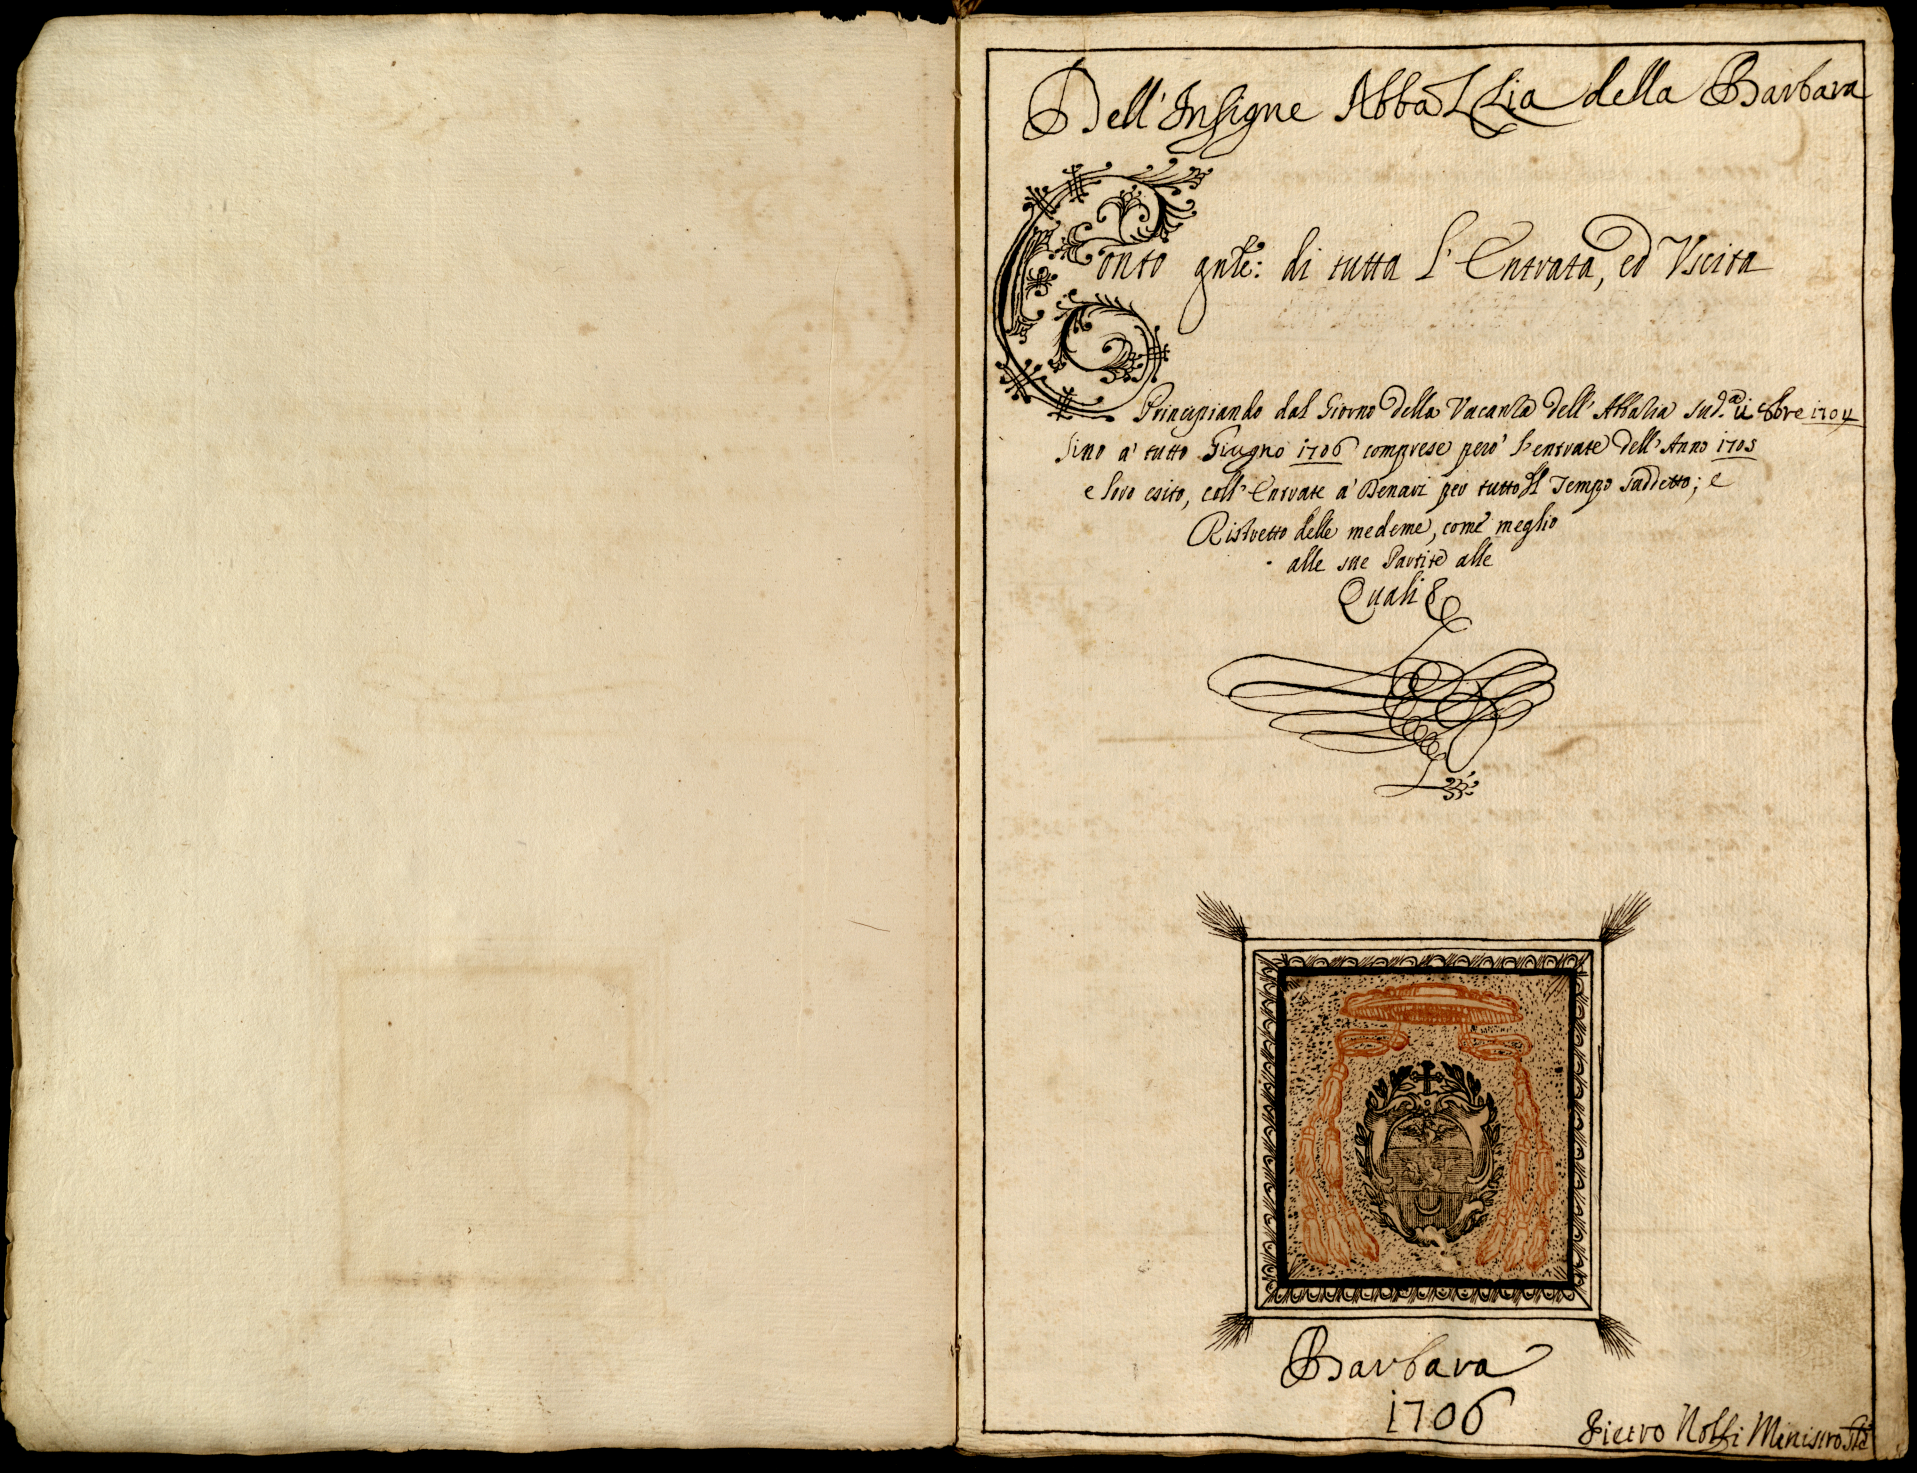 Dell' Insigne Abbazzia della Barbara
Conto gnle: di tutta l'Entrata, ed Vscita
Principiando dal Giorno della Vacanza dell'Abbazia sud.a 8bre 1704
sino a' tutto Giugno 1706 comprese però l'entrate dell'Anno 1705
e loro esito, coll'Entrate a' Denari per tutto Il Tempo suddetto; e
Ristretto delle medeme, come meglio
alle sue Partite alle
Quali &
Barbara
1706
Pietro Nolfi Ministro